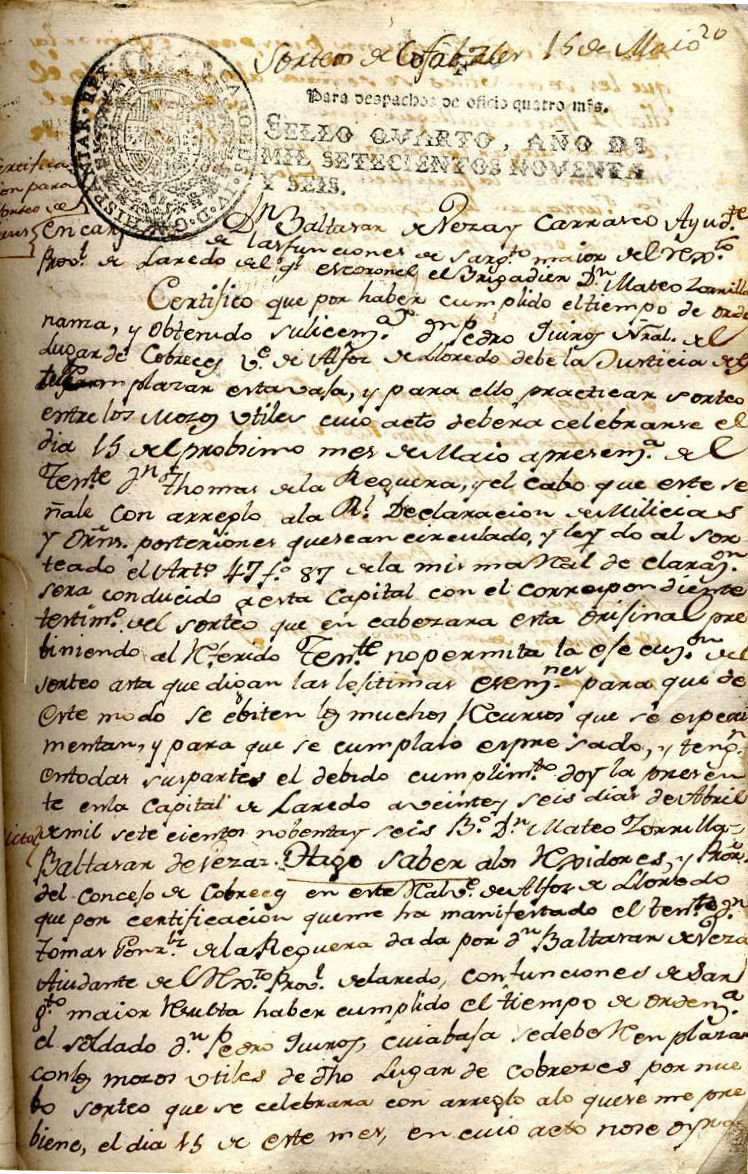 20
Sorteo de Cofabales 15 de Maio
Para despachos de oficio quatro mrs.
SELLO QVARTO, AÑO DE
MIL SETECIENTOS NOVENTA
Y SEIS.
CAROLUS IV D G HISPANIAR REX
Certifica
on para
sorteo de
Dn Baltasar de Veza y Carrasco Ayudte
en cargo de las funciones de Sargto maior del Rexto
Provl de Laredo del ql es coronel el Brigadier Dn Mateo Zorrilla
Certifico que por haber cumplido el tiempo de orde
nanza, y obtenido su licema dn Pedro Quiros Nral. del
Lugar de Cobreces Ve de Alfoz de Lloredo debe la Justicia de
emplazar esta vasa, y para ello practicar sorteo
entre los Mozos utiles cuio acto debera celebrarse el
dia 15 del proximo mes de Maio apresema del
Tente dn Thomas de la Reguera, y el cabo que este se
ñale con arreglo a la Rl Declaracion de Milicias
y Orns. posteriores que sean circulado, y leydo al sor
teado el Arto 47 fo 87 de la misma Real declaraon
sera conducido a esta Capital con el correspondiente
testimo del sorteo que en cabezara esta orijinal pre
biniendo al Referido Tente no permita la esecuon del
sorteo asta que digan las lejitimas esemnes para que de
este modo se ebiten los muchos Recursos que se esperi
mentan, y para que se cumpla lo espresado, y tenga
en todas sus partes el debido cumplimto doy la presen
te en la Capital de Laredo a veinte y seis dias de Abril
de mil setecientos nobenta y seis Bo Dn Mateo Zorrilla
Baltasar de Veza. Hago saber a los Rexidores, y Pror
del Concejo de Cobreces en este Ral Ve de Alfoz de Lloredo
que por certificacion que me ha manifestado el tente dn
Tomas Gonzlz de la Reguera dada por dn Baltasar de Veza
Aiudante del Rexto Provl de Laredo, con funciones de Sar
gto maior Resulta haber cumplido el tiempo de ordema
el soldado dn Pedro Quiros, cuia basa se debe Renplazar
con los mozos utiles de dho Lugar de Cobreces por nue
bo sorteo que se celebrara con arreglo a lo que se me pre
biene, el dia 15 de este mes, en cuio acto no se